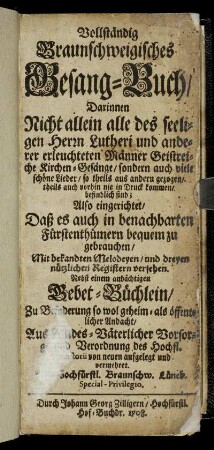 Vollständig
Braunschweigisches
Gesang-Buch/
Darinnen
Nicht allein alle des seeli-
gen Herrn Lutheri und ande-
rer erleuchteten Männer Geistrei-
che Kirchen-Gesänge/ sondern auch viele
schöne Lieder/ so theils aus andern gezogen/
theils auch vorhin nie in Druck kommen/
befindlich sind;
Also eingerichtet/
Daß es auch in benachbarten
Fürstenthümern bequem zu
gebrauchen/
Mit bekandten Melodeyen/ und dreyen
nützlichen Registern versehen.
Nebst einem andächtigen
Gebet-Büchlein/
Zu so wol geheim- als öffent-
licher Andacht/
Aus Väterlicher Vorsor-
Verordnung des Hochfl.
von neuen aufgelegt und
vermehret.
Hochfürstl. Braunschw. Lüneb.
Special-Privilegio.
Durch Johann Georg Zilligern/ Hochfürstl.
Hof-Buchdr. 1708.